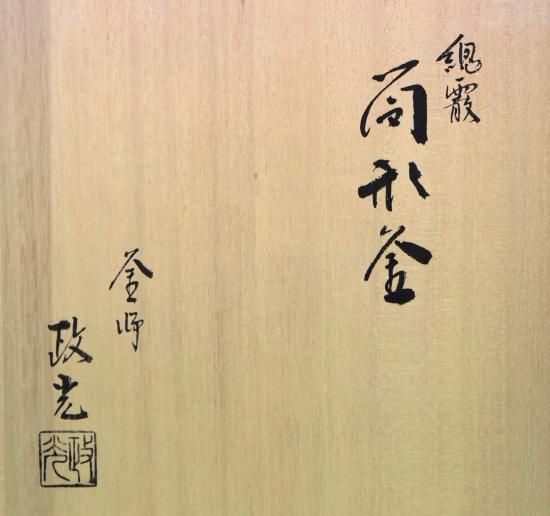 総霰
筒形釜
釜師
政光
政光